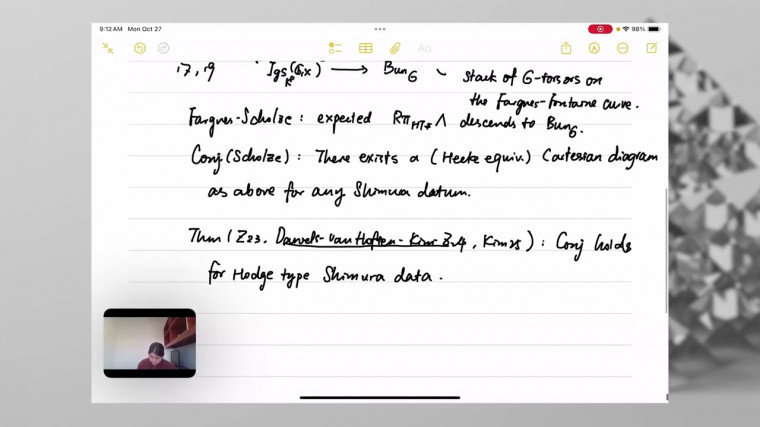 9:12 AM Mon Oct 27
98%
Aa
17, 19 Igs_{K^p}(G,X) → Bun_G stack of G-torsors on
the Fargues-Fontaine curve.
Fargues-Scholze : expected Rπ_{HT*} Λ descends to Bun_G.
Conj (Scholze) : There exists a (Hecke equiv.) Cartesian diagram
as above for any Shimura datum.
Thm (Z23, Daniels-van Hoften-Kim-Z24, Kim25) : Conj holds
for Hodge type Shimura data.